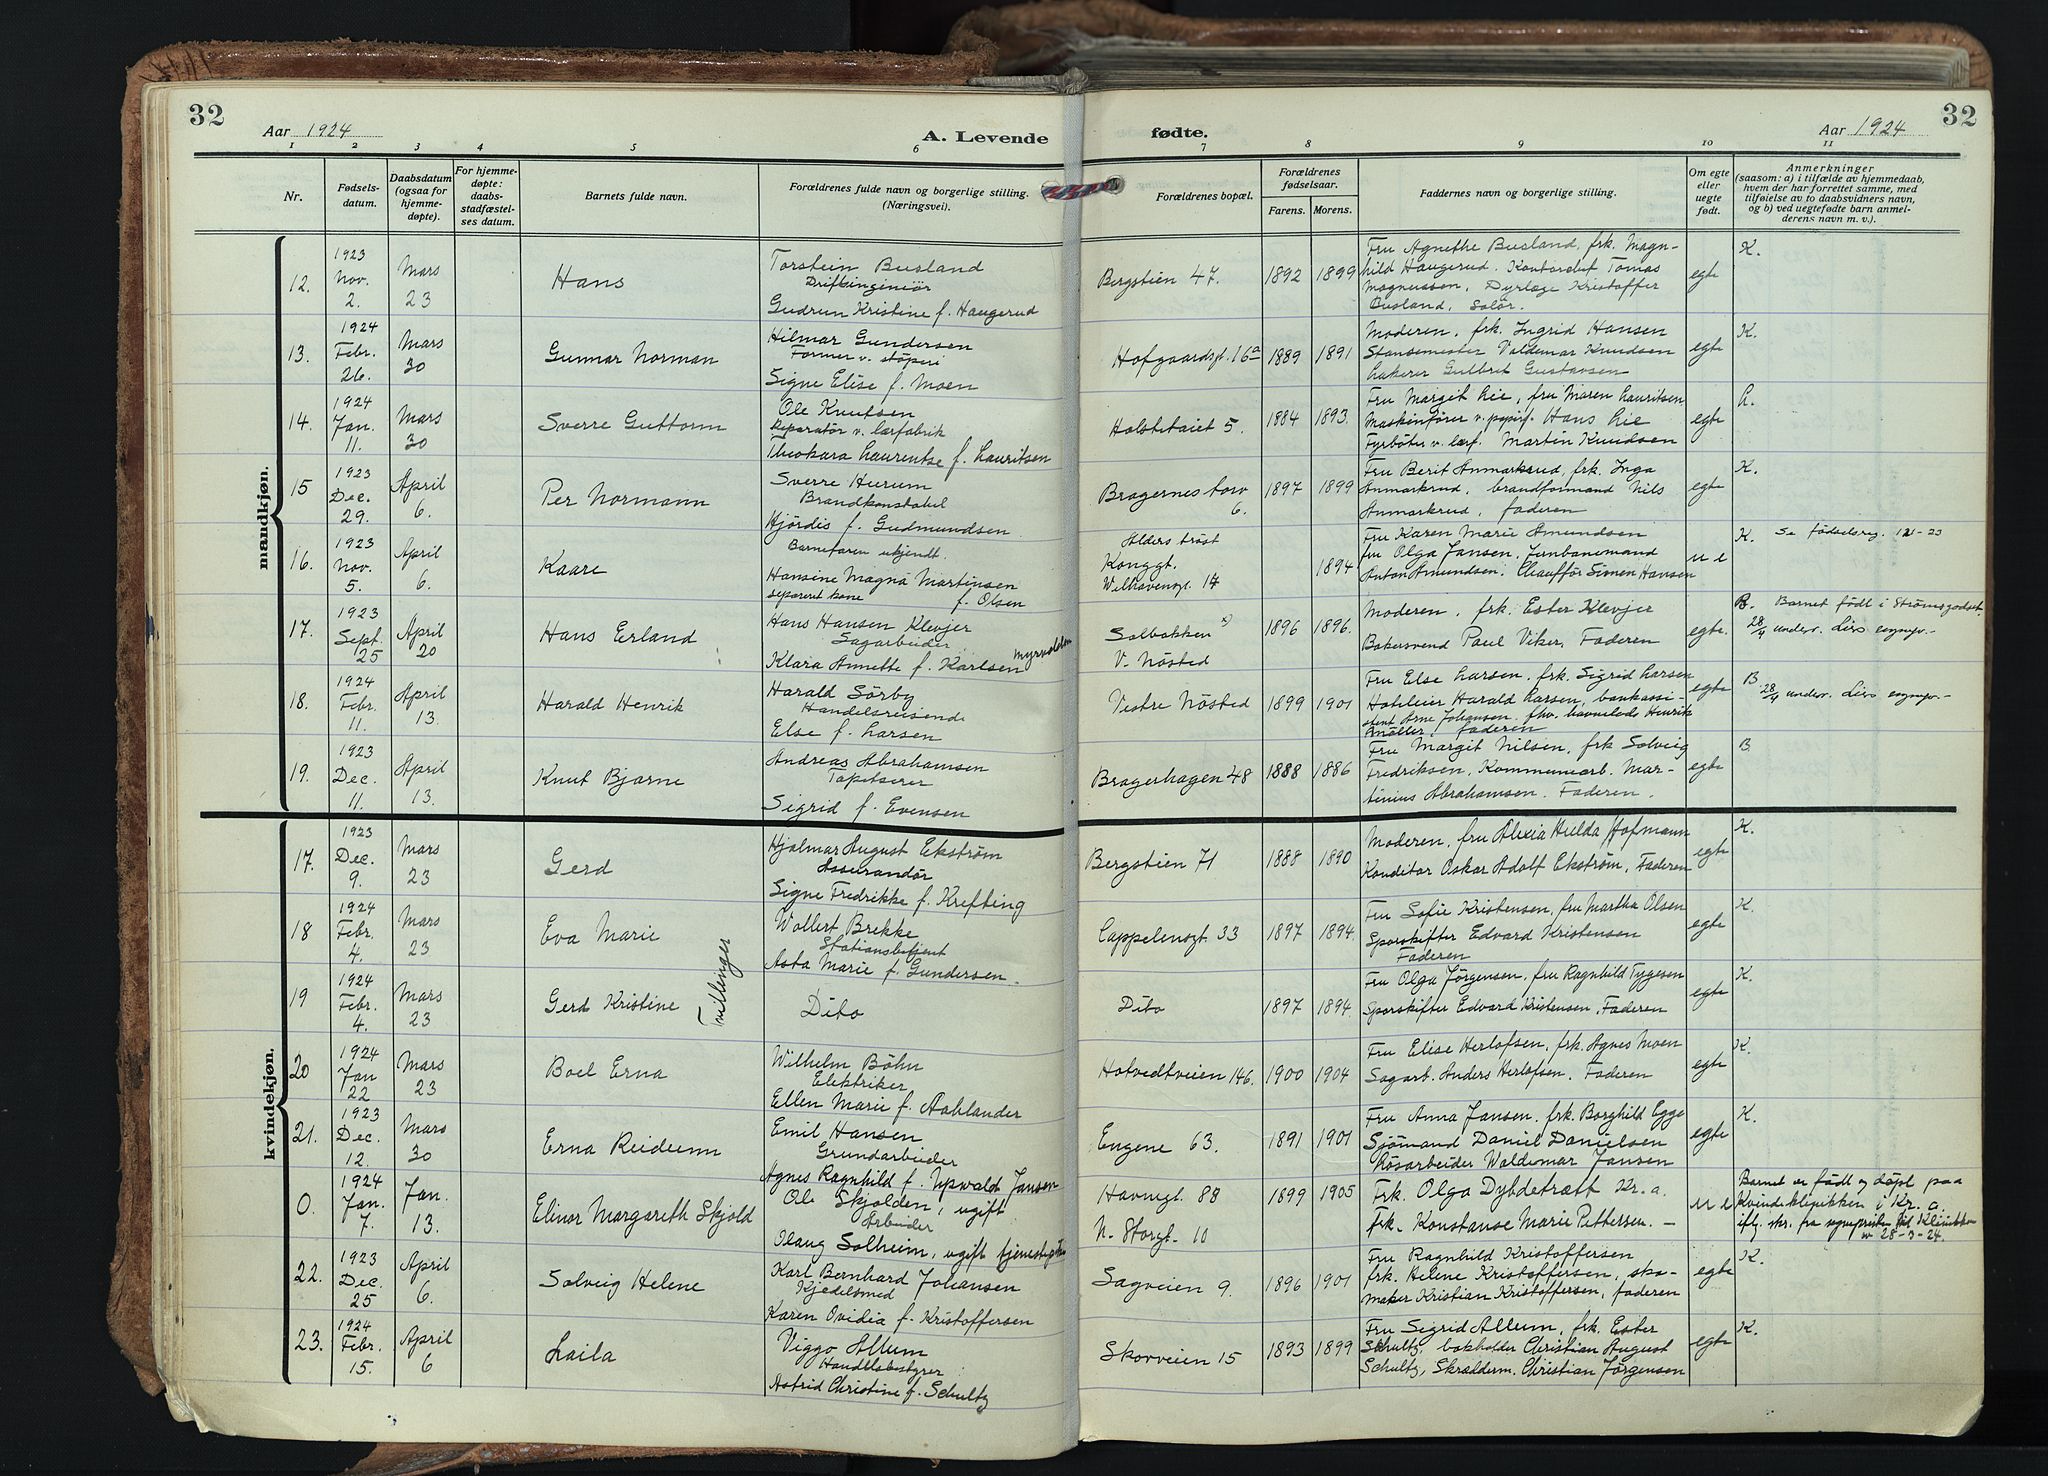 32
32
Aar 1924
A. Levende
fødte.
Aar 1924
1 2 3 4 5 6 7 8 9 10 11
Nr.
Fødsels-
datum.
Daabsdatum
(ogsaa for
hjemme-
døpte).
For hjemme-
døpte:
daabs-
stadfæstel-
ses datum.
Barnets fulde navn.
Forældrenes fulde navn og borgerlige stilling.
(Næringsvei).
Forældrenes bopæl.
Forældrenes
fødselsaar.
Farens. Morens.
Faddernes navn og borgerlige stilling.
Om egte
eller
uegte
født.
Anmerkninger
(saasom: a) i tilfælde av hjemmedaab,
hvem der har forrettet samme, med
tilføielse av to daabsvidners navn,
og b) ved uegtefødte barn anmel-
derens navn m. v.).
mandkjøn.
12. 1923 Nov. 2. Mars 23 Hans
Torstein Busland
Driftsingeniør
Gudrun Kristine f. Haugerud
Bergstien 47. 1892 1899
Fru Agnethe Busland, frk. Magn-
hild Haugerud. Kontorchef Tomas
Magnussen, Dyrlæge Kristoffer
Busland, Solør.
egte K.
13. 1924 Febr. 26. Mars 30 Gunnar Norman
Hilmar Gundersen
Former v. støperi
Signe Elise f. Moen
Hofgaardsgt. 16a 1889 1891
Moderen, frk. Ingrid Hansen
Stansemester Valdemar Knudsen
Lakerer Gulbrit Gustavsen
egte K.
14. 1924 Jan. 11. Mars 30 Sverre Guttorm
Ole Knutsen
Reparatør v. lærfabrik
Theokara Laurentse f. Lauritsen
Holstetaiet 5. 1884 1893.
Fru Margit Lie, fru Maren Lauritsen
Maskinfører v. papirf. Hans Lie
Fyrbøter v. lærf. Martin Knudsen
egte L.
15 1923 Dec. 29. April 6. Per Normann
Sverre Hurum
Brandkonstabel
Hjørdis f. Gudmundsen.
Bragernes torv 6. 1897 1899
Fru Berit Anmarkrud, frk. Inga
Anmarkrud, brandformand Nils
Anmarkrud, faderen
egte K.
16. 1923 Nov. 5. April 6. Kaare
Barnefaren ukjendt.
Hansine Magna Martinsen
separert kone f. Olsen
Alders trøst
Konggt.
Welhavensgt. 14
1894
Fru Karen Marie Amundsen
fru Olga Jansen, Jernbanemand
Anton Amundsen, Chauffør Simen Hansen
u e K. Se fødselsreg. 121-23
17. 1923 Sept. 25 April 20 Hans Erland
Hans Hansen Klevjer
Sagarbeider
Klara Annette f. Karlsen Myrvolden
Solbakken x)
V. Nøsted
1896 1896.
Moderen, frk. Ester Klevjer
Bakersvend Paul Viker, Faderen
egte. B. Barnet født i Strømsgodset.
28/4 underr. Liers sognepr.-
18. 1924 Febr. 11. April 13. Harald Henrik
Harald Sørby
Handelsreisende
Else f. Larsen
Vestre Nøsted 1899 1901
Fru Else Larsen, frk. Sigrid Larsen
Hoteleier Harald Larsen, bankassi-
stent Arne Johansen. fhv. havnelods Henrik
Møller, faderen
egte B 28/4 underr. Liers sognepr.-
19. 1923 Dec. 11. April 13. Knut Bjarne
Andreas Abrahamsen
Tapetserer
Sigrid f. Evensen
Bragerhagen 48 1888 1886
Fru Margit Nilsen, frk Solveig
Fredriksen, Kommunearb. Mar-
tinius Abrahamsen. Faderen.
egte B
kvindekjøn.
17. 1923 Dec. 9. Mars 23 Gerd
Hjalmar August Ekstrøm
Assurandør
Signe Fredrikke f. Krefting
Bergstien 71 1888 1890
Moderen, fru Alexia Hulda Hofmann
Konditor Oskar Adolf Ekstrøm, Faderen
egte K.
18 1924 Febr. 4. Mars 23 Eva Marie
Tvillinger
Wollert Brekke
Stationsbetjent
Asta Marie f. Gundersen.
Cappelensgt. 33 1897 1894.
Fru Sofie Kristensen, fru Martha Olsen
Sporskifter Edvard Kristensen
Faderen
egte K.
19 1924 Febr. 4. Mars 23 Gerd Kristine
Dito
Dito 1897 1894.
Fru Olga Jørgensen, fru Ragnhild Tygesen
Sporskifter Edvard Kristensen, Faderen
egte K.
20 1924 Jan 22 Mars 23 Boel Erna
Wilhelm Bøhn
Elektriker
Ellen Marie f. Aahlander
Hotvedtveien 146. 1900 1904
Fru Elise Herlofsen, frk. Agnes Moen
Sagarb. Anders Herlofsen. Faderen
egte K.
21. 1923 Dec. 12. Mars 30 Erna Reidunn
Emil Hansen
Grundarbeider
Agnes Ragnhild f. Upwald Jansen
Eugene 63. 1891 1901
Fru Anna Jansen, frk. Borghild Egge
Sjømand Daniel Danielsen
Røsarbeider Waldemar Jansen
egte K.
0. 1924 Jan. 7. Jan. 13. Elinor Margareth Skjold
Ole Skjolden, ugift
Arbeider
Olaug Solheim, ugift tjenestepike
Havnegt. 88
N. Storgt. 10
1899 1905
Frk. Olga Dybdetrætt Kr.a.
Frk. Konstanse Marie Pettersen. -
u e Barnet er født og døpt paa
Kvindeklinikken i Kr. a.
ifl. skr. fra sognepresten til Klinikken
av 28-3-24.
22. 1923 Dec. 25 April 6. Solveig Helene
Karl Bernhard Johansen
Kjedelsmed
Karen Ovidia f. Kristoffersen
Sagveien 9. 1896 1901
Fru Ragnhild Kristoffersen
frk. Helene Kristoffersen, sko-
maker Kristian Kristoffersen, faderen
egte K.
23. 1924 Febr. 15. April 6 Laila
Viggo Allum
Handelsbestyrer
Astrid Christine f. Schultz
Skorveien 15 1893 1899
Fru Sigrid Allum, frk. Ester
Schultz, bokholder Christian August
Schultz, Skrædderm. Christian Jørgensen
egte K.